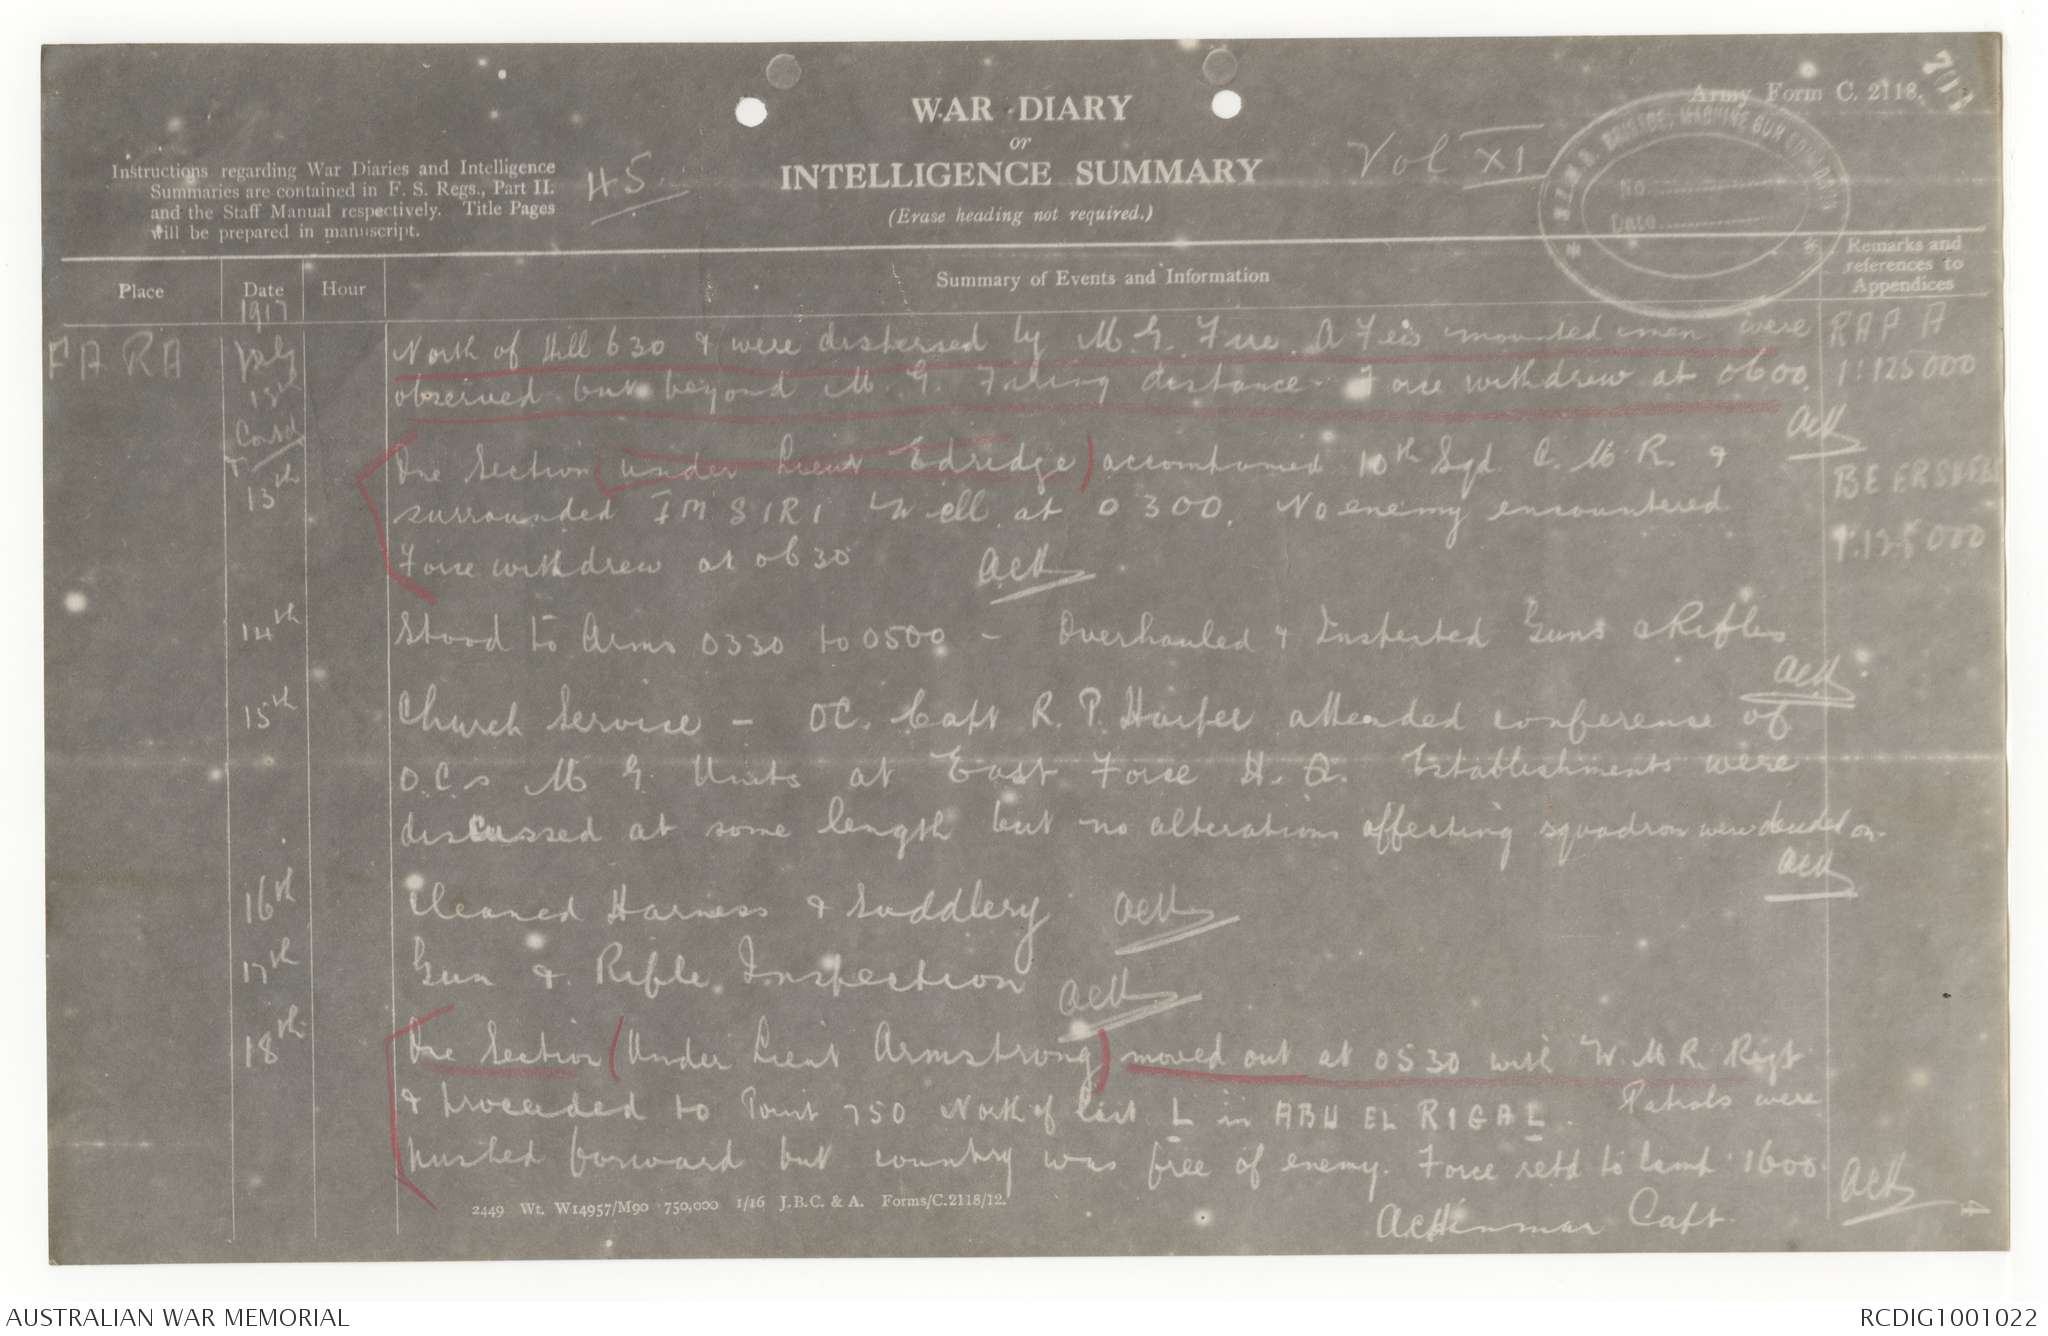 Army Form C. 2118.
WAR DIARY
or
INTELLIGENCE SUMMARY
(Erase heading not required.)
Instructions regarding War Diaries and Intelligence
Summaries are contained in F. S. Regs., Part II.
and the Staff Manual respectively. Title Pages
will be prepared in manuscript.
45.
Vol XI
N.Z.M.R. BRIGADE, MACHINE GUN SQUADRON
No.
Date
Place
Date
Hour
Summary of Events and Information
Remarks and
references to
Appendices
1917
FARA
July
13th
Contd
North of Hill 630 & were dispersed by M.G. Fire. A Few mounted men were
observed but beyond M.G. Firing distance. Force withdrew at 0600.
RAFA
1:125000
ACH
&
13th
One Section (under Lieut Edridge) accompanied 10th Sqd. C.M.R. &
surrounded IMSIRI Well at 0300. No enemy encountered
Force withdrew at 0630
ACH
BEERSHEBA
1:125000
14th
Stood to Arms 0330 to 0500 - Overhauled & Inspected Guns & Rifles
ACH
15th
Church Service - OC. Capt R. P. Harper attended conference of
O.C.s M G Units at East Force H.Q. Establishments were
discussed at some length but no alterations affecting squadron were decided on.
ACH
16th
Cleaned Harness & Saddlery
ACH
17th
Gun & Rifle Inspection
ACH
18th
One Section (Under Lieut Armstrong) moved out at 0530 with W.M.R. Regt
& proceeded to Point 750 North of last L in ABU EL RIGAL. Patrols were
pushed forward but country was free of enemy. Force retd to Camp 1600.
ACH
ACHinman Capt.
2449 Wt. W14957/M90 750,000 1/16 J.B.C. & A. Forms/C.2118/12.
AUSTRALIAN WAR MEMORIAL
RCDIG1001022